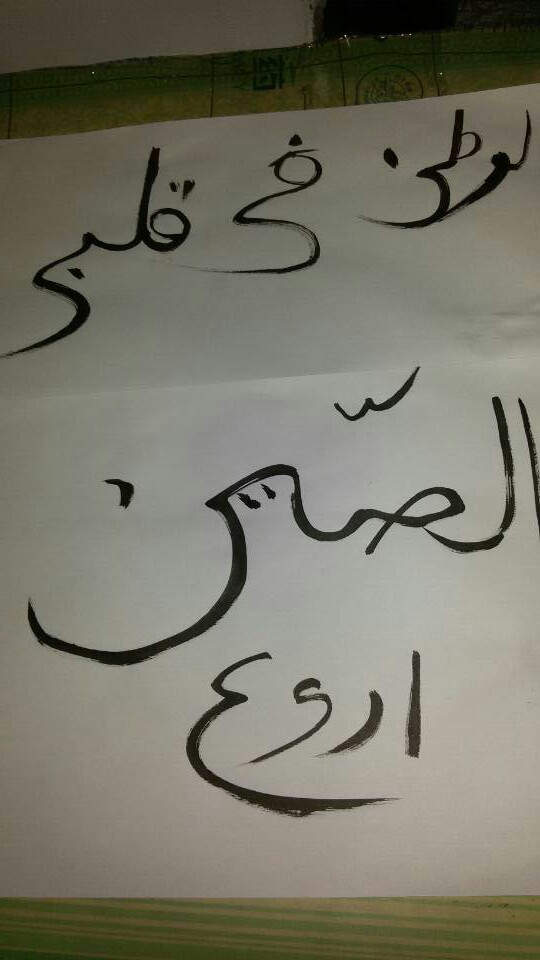 وطني في قلبي
الصّين
اروع